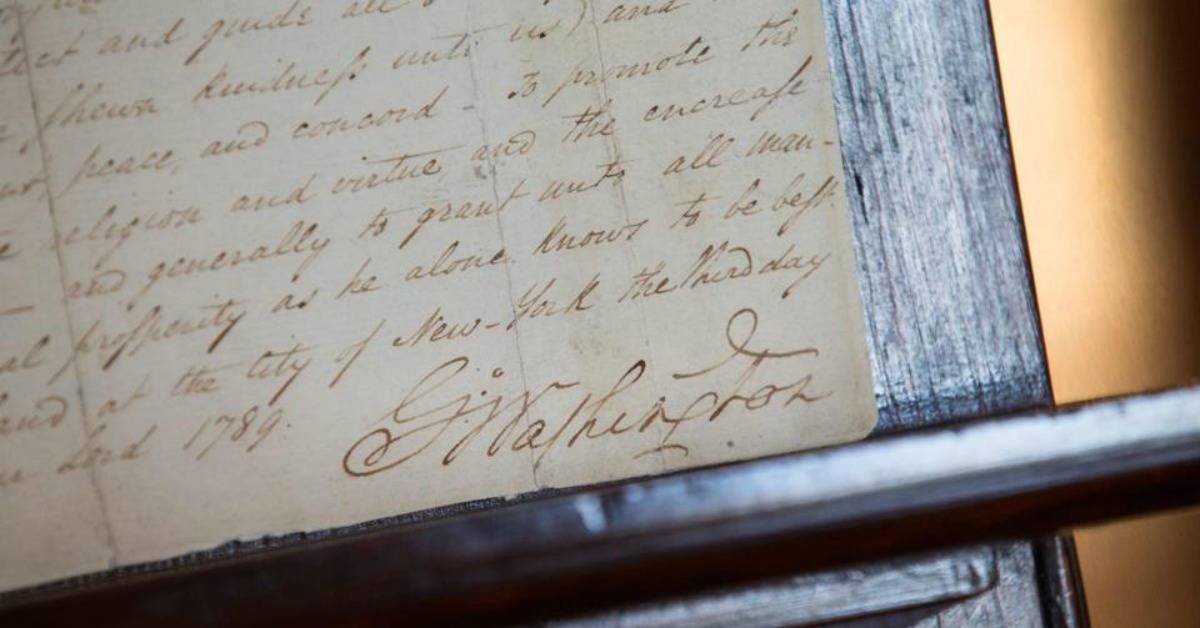 and guide all
shewn kindneſs unto us) and
peace, and concord - To promote the
religion and virtue, and the encreaſe
and generally to grant unto all man-
al proſperity as he alone knows to be beſt.
hand at the City of New-York the third day
Lord 1789.
G:Washington